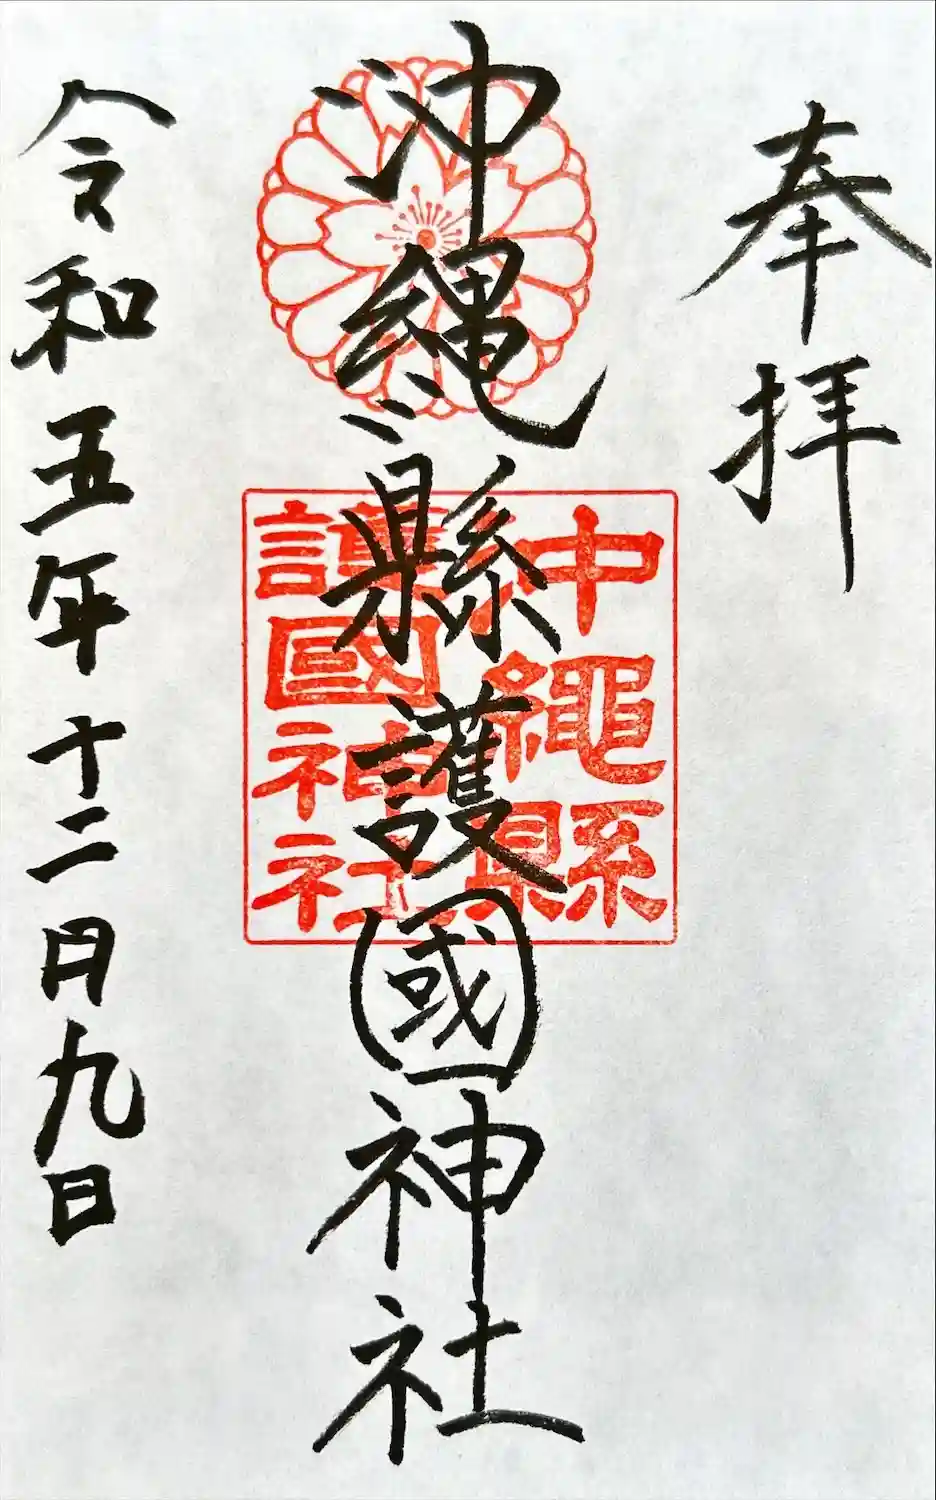 奉拝
沖縄縣護國神社
沖繩縣
護國神社
令和五年十二月九日